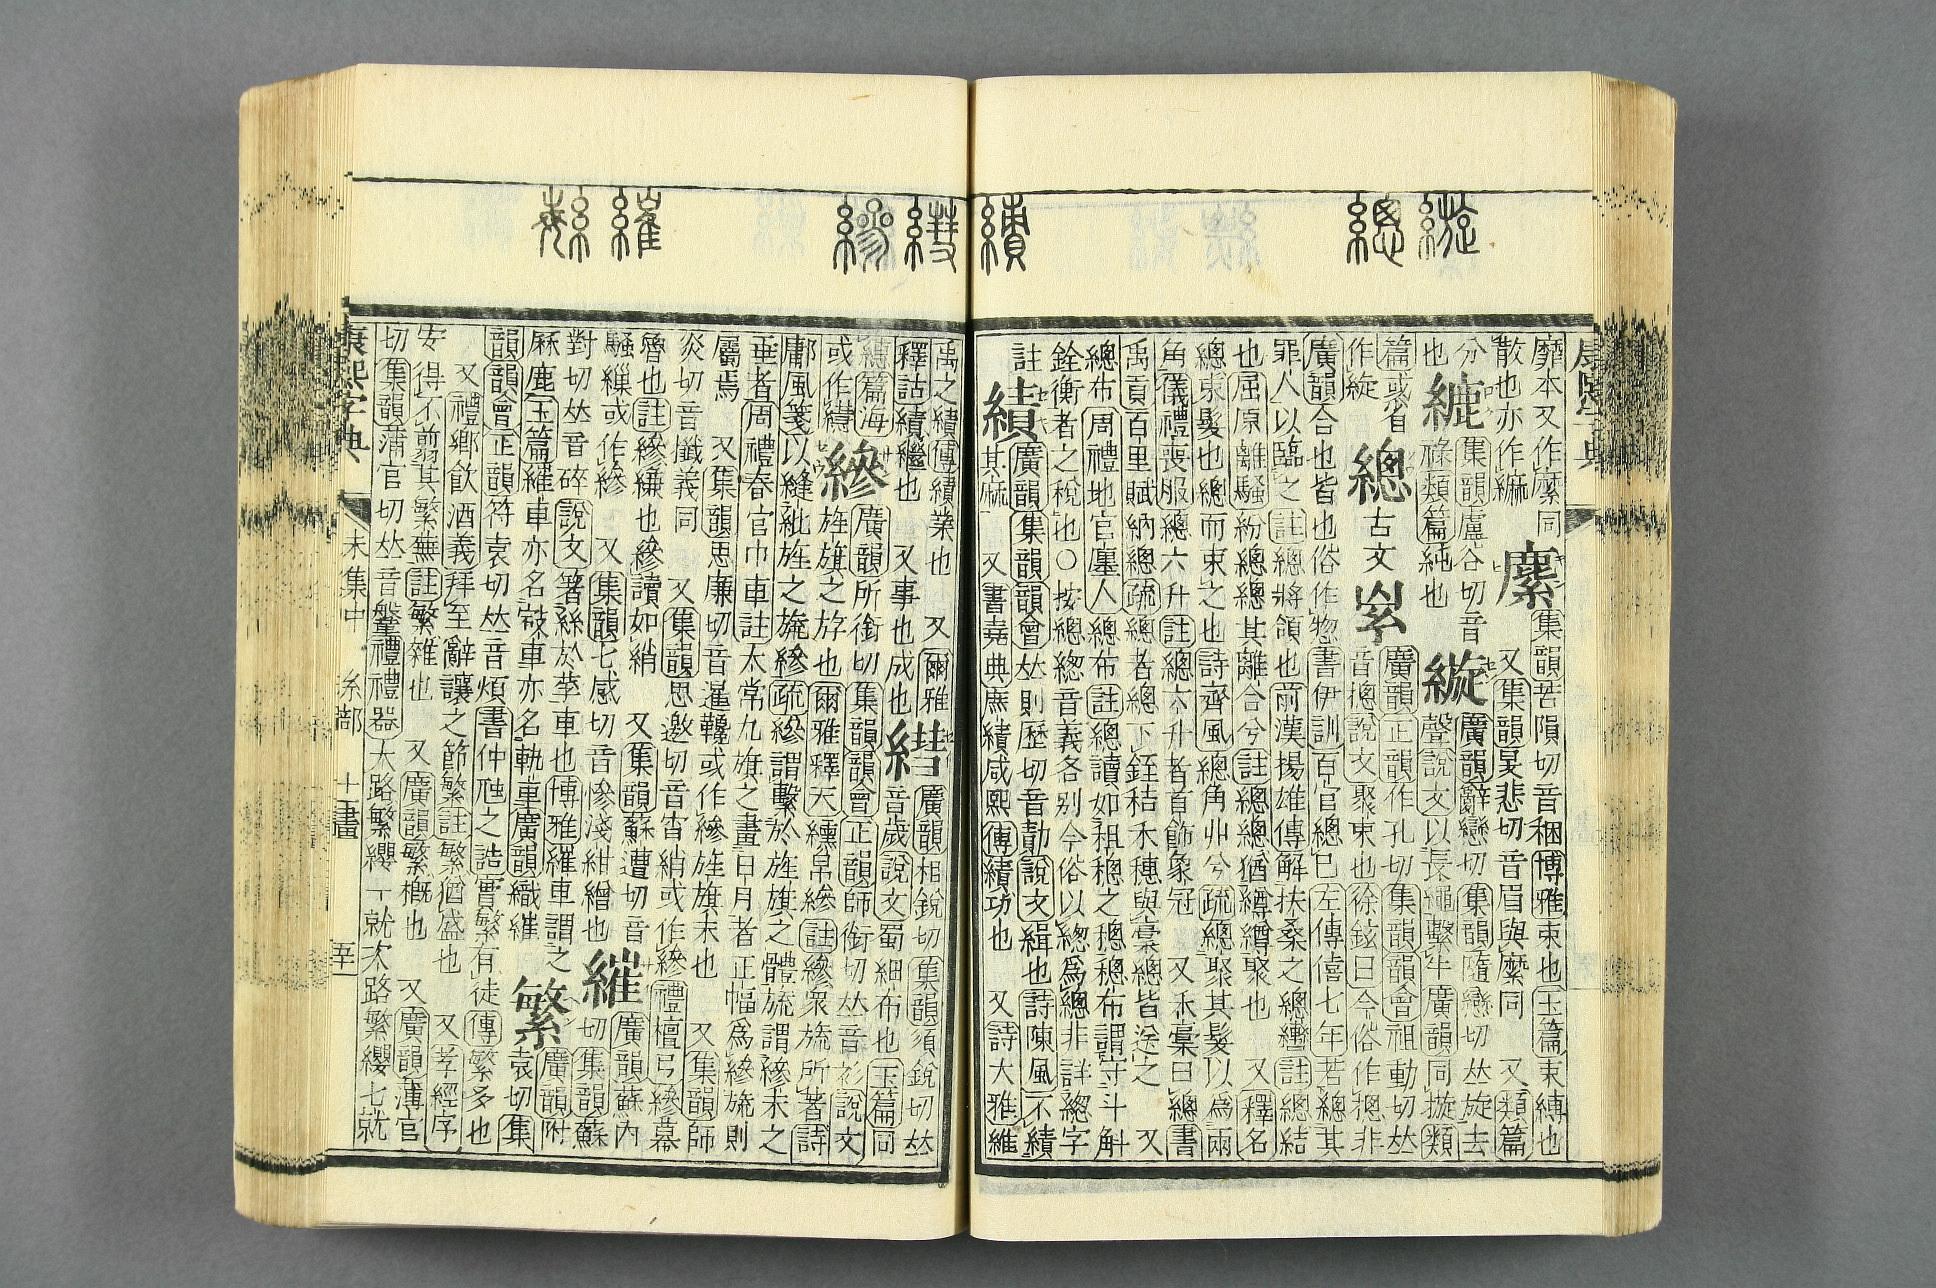 縼
總
績
縿
繀
康熙字典
靡本又作縻同
散也亦作
集韻苦隕切音稛博雅束也玉篇束縛也
又集韻旻悲切音眉與縻同 又類篇
集韻盧谷切音
祿類篇純也
縼
廣韻辭戀切集韻隨戀切𠀤旋去
聲說文以長繩繫牛廣韻同㨷類
篇或省
作䋢
總
古文
廣韻正韻作孔切集韻韻會祖動切𠀤
音摠說文聚束也徐鉉曰今俗作摠非
廣韻合也皆也俗作惣書伊訓百官總己左傳僖七年若總其
罪人以臨之註總將領也前漢揚雄傳解扶桑之總轡註總結
也屈原離騷紛總總其離合兮註總總猶繜繜聚也 又釋名
總束髮也總而束之也詩齊風總角丱兮疏總聚其髮以為兩
角儀禮喪服總六升註總六升者首飾象冠 又禾稾曰總書
禹貢百里賦納總疏總者總下銍秸禾穗與稾總皆送之 又
總布周禮地官廛人總布註總讀如租稯之稯總布謂守斗斛
銓衡者之稅也○按總緫音義各別今俗以緫為總非詳緫字
註
績
廣韻集韻韻會𠀤則歷切音勣說文緝也詩陳風不績
其麻 又書堯典庶績咸熙傳績功也 又詩大雅維
禹之績傳績業也 又爾雅
釋詁績繼也 又事也成也
廣韻相銳切集韻須銳切𠀤
音歲說文蜀細布也玉篇同
篇海
或作
縿
廣韻所銜切集韻韻會正韻師銜切𠀤音衫說文
旌旗之斿也爾雅釋天纁帛縿註縿眾旒所著詩
鄘風箋以縫紕旌之旒縿疏縿謂繫於旌旗之體旒謂縿末之
垂者周禮春官巾車註太常九旗之畫日月者正幅為縿旒則
屬焉 又集韻思廉切音暹韱或作縿旌旗末也 又集韻師
炎切音襳義同 又集韻思邀切音宵綃或作縿禮檀弓縿幕
魯也註縿縑也縿讀如綃 又集韻蘇遭切音
騷繅或作縿 又集韻七感切音慘淺紺繒也
繀
廣韻蘇內
切集韻蘇
對切𠀤音碎說文著絲於莩車也博雅繀車謂之
厤鹿玉篇繀車亦名䋿車亦名軌車廣韻織繀
繁
廣韻附
袁切集
韻韻會正韻符袁切𠀤音煩書仲虺之誥實繁有徒傳繁多也
又禮鄉飲酒義拜至辭讓之節繁註繁猶盛也 又孝經序
安得不翦其繁蕪註繁雜也 又廣韻繁槪也 又廣韻薄官
切集韻蒲官切𠀤音鞶禮禮器大路繁纓一就次路繁纓七就
康熙字典
未集中 糸部 十一畫